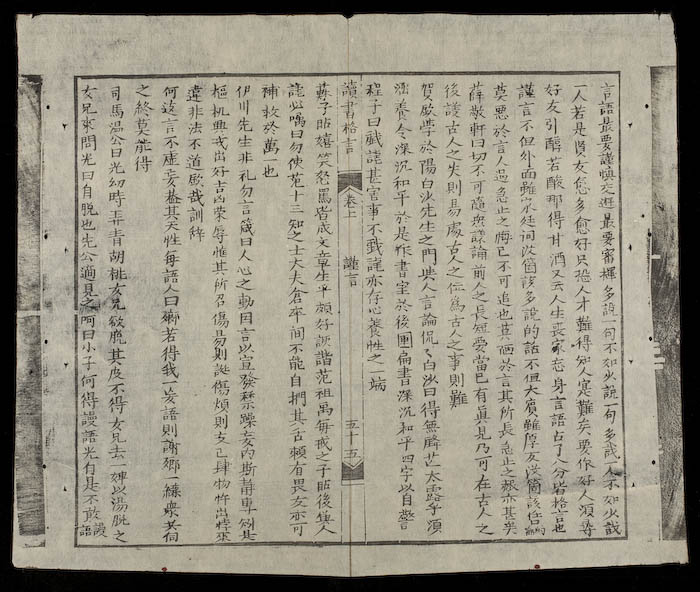 言語最要謹慎交遊最要審擇多說一句不如少說一句多識一人不如少識
一人若是賢友愈多愈好只恐人才難得知人寔難矣要作好人須尋
好友引酵若酸那得甘酒又云人生喪家亡身言語占了八分皆格言也
謹言不但外面雖家庭間沒箇該多說的話不但大賓雖厚友沒箇該任
莫惡於言人過急止之悔已不可追也莫陋於言其所長急止之赧亦甚矣
薛敬軒曰切不可隨衆議論前人之長短要當已有真見乃可在古人之
後議古人之失則易處古人之位為古人之事則難
賀歐學於陽白沙先生之門與人言論侃々白沙曰得無鋒芒太露乎須
涵養令深沉和平於是作書室於後圃扁書深沉和平四字以自警
程子曰戲謔甚害事不戲謔亦存心養性之一端
讀書格言 卷上 謹言 五十五
蘇子瞻嬉笑怒罵皆成文章生平頗好詼諧范祖禹每戒之子瞻後與人
謔必囑曰勿使范十三知之士大夫倉卒間不能自捫其舌賴有畏友亦可
補救於萬一也
伊川先生非禮勿言箴曰人心之動因言以宣發禁躁妄內斯静專矧是
樞机興戎出好吉凶榮辱惟其所召傷易則誕傷煩則支己肆物忤出悖來
違非法不道歐哉訓辞
何遠言不虛妄蓋其天性每語人曰卿若得我一妄語則謝卿一縑衆共伺
之終莫能得
司馬温公曰光幼時弄青胡桃女兄欲脫其皮不得女兄去一婢以湯脫之
女兄來問光曰自脫也先公適見之呵曰小子何得謾語光自是不敢謾語